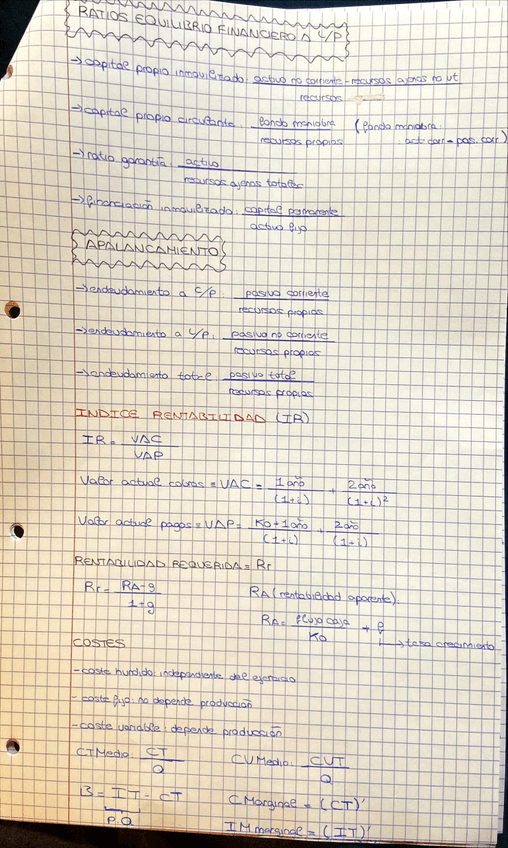 RATIOS EQUILIBRIO FINANCIERO A L/P
→ capital propio inmovilizado: activo no corriente - recursos ajenos no ut
recursos
→ capital propio circulante: fondo maniobra (fondo maniobra:
recursos propios : act-corr - pas.corr)
→ ratio garantía: activo
recursos ajenos totales
→ financiación inmovilizado: capital permanente
activo fijo
APALANCAMIENTO
→ endeudamiento a C/P: pasivo corriente
recursos propios
→ endeudamiento a L/P: pasivo no corriente
recursos propios
→ endeudamiento total: pasivo total
recursos propios
INDICE RENTABILIDAD (IR)
IR = VAC
VAP
Valor actual cobros = VAC = 1 año + 2 año
(1+i) (1+i)²
Valor actual pagos = VAP = K0 + 1 año + 2 año
(1+i) (1+i)
RENTABILIDAD REQUERIDA = Rr
Rr = RA - g RA (rentabilidad aparente).
1+g
RA = flujo caja + g
K0 → tasa crecimiento
COSTES
- coste hundido: independiente del ejercicio
- coste fijo: no depende producción
- coste variable: depende producción
CTMedio: CT CVMedio: CVT
Q Q
B = IT - CT CMarginal = (CT)'
P.Q
IMmarginal = (IT)'